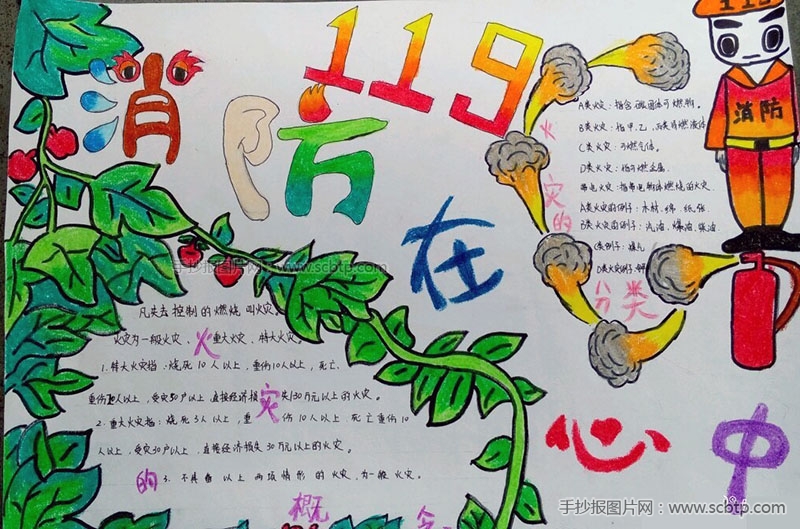 119
消防
在
心中
消防
火灾的分类
A类火灾：指含碳固体可燃物。
B类火灾：指甲、乙、丙类可燃液体
C类火灾：可燃气体。
D类火灾：指可燃金属.
带电火灾：指带电物体燃烧的火灾.
A类火灾的例子：木材、棉、纸张.
B类火灾的例子：汽油、煤油、柴油.
D类火灾例子
手抄报图片网：www.scbtp.com
火灾的概念
凡失去控制的燃烧,叫火灾。
火灾为一般火灾、重大火灾、特大火灾。
1.特大火灾指：烧死10人以上，重伤10人以上，死亡、
重伤20人以上，受灾50户以上，直接经济损失100万元以上的火灾。
2.重大火灾指：烧死3人以上，重伤10人以上.死亡重伤10
人以上，受灾30户以上，直接经济损失30万元以上的火灾。
3.不具备以上两项情形的火灾,为一般火灾.
手抄报图片网：www.scbtp.com